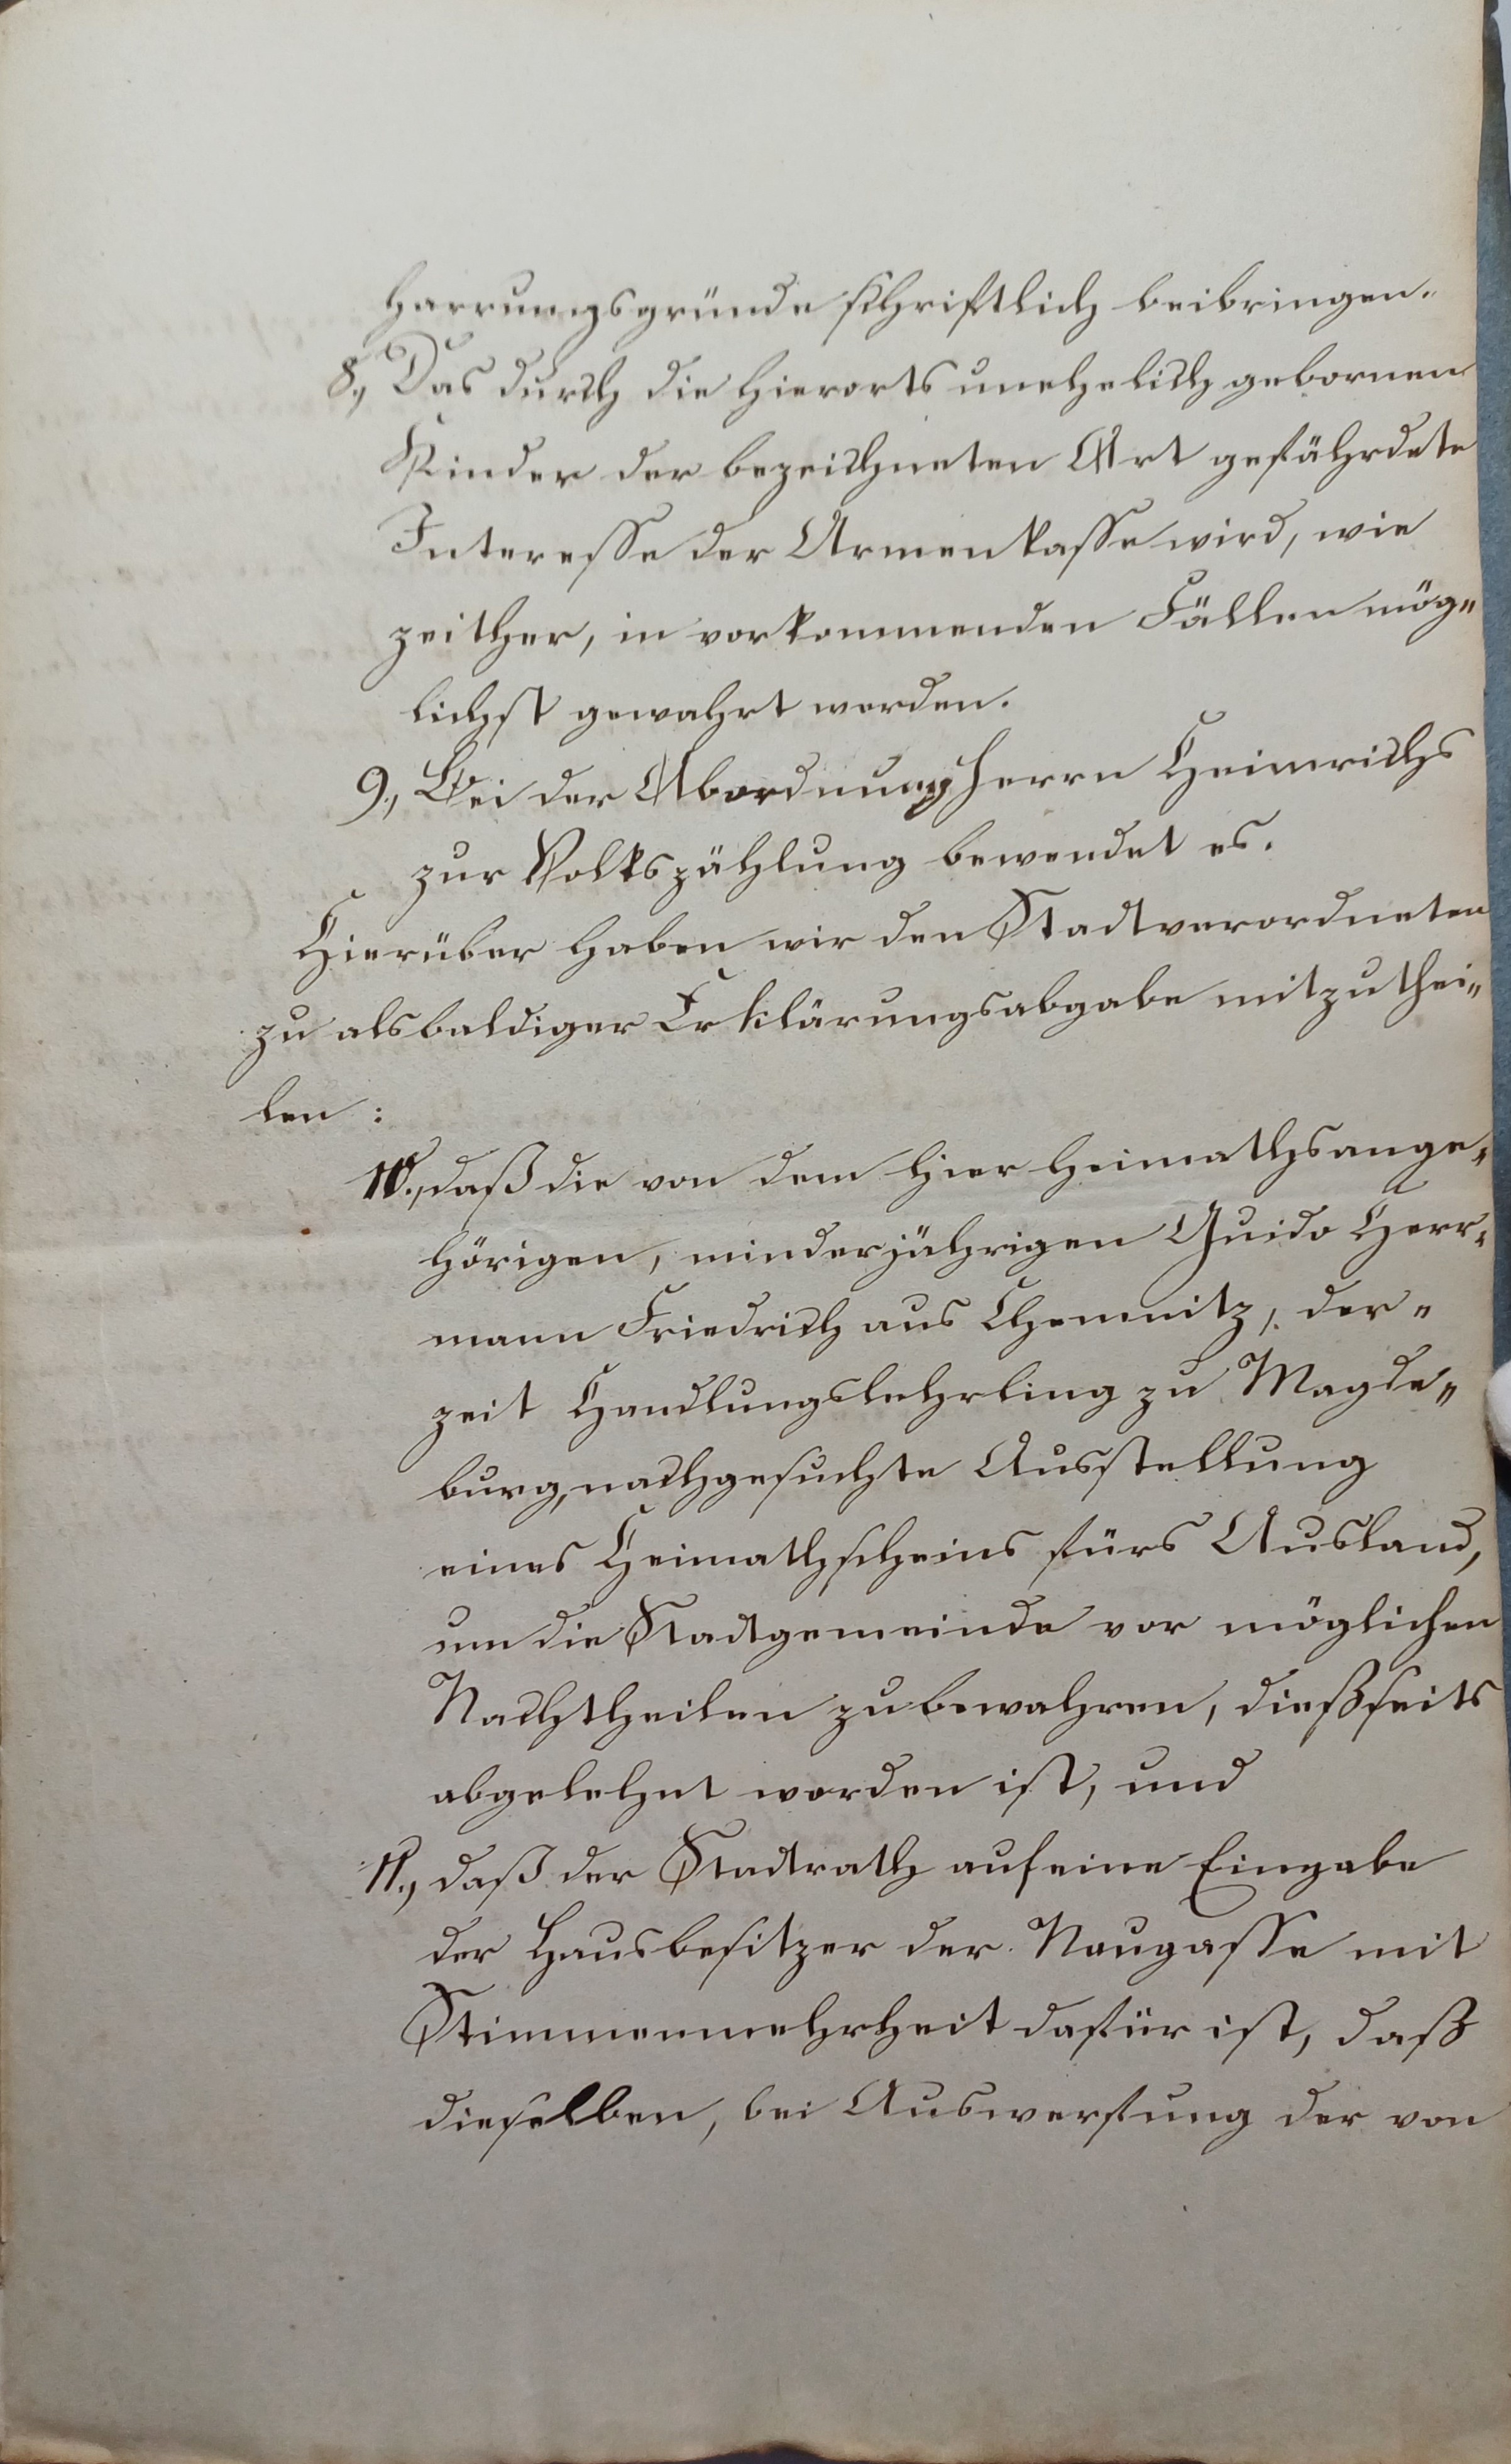 harrungsgründe schriftlich beibringen.
8., Das durch die hierorts unehelich gebornen
Kinder der bezeichneten Art gefährdete
Interesse der Armenkasse wird, wie
zeither, in vorkommenden Fällen mög-
lichst gewahrt werden.
9., Bei der Abordnung Herrn Heinrichs
zur Volkszählung bewendet es.
Hierüber haben wir den Stadtverordneten
zu alsbaldiger Erklärungsabgabe mitzuthei-
len:
10., daß die von dem hier heimathsange-
hörigen, minderjährigen Guido Herr-
mann Friedrich aus Chemnitz, der-
zeit Handlungslehrling zu Magde-
burg, nachgesuchte Ausstellung
eines Heimathscheins fürs Ausland,
um die Stadtgemeinde vor möglichen
Nachtheilen zu bewahren, dießseits
abgelehnt worden ist, und
11., daß der Stadtrath auf eine Eingabe
der Hausbesitzer der Neugasse mit
Stimmenmehrheit dafür ist, daß
dieselben, bei Auswerfung der von